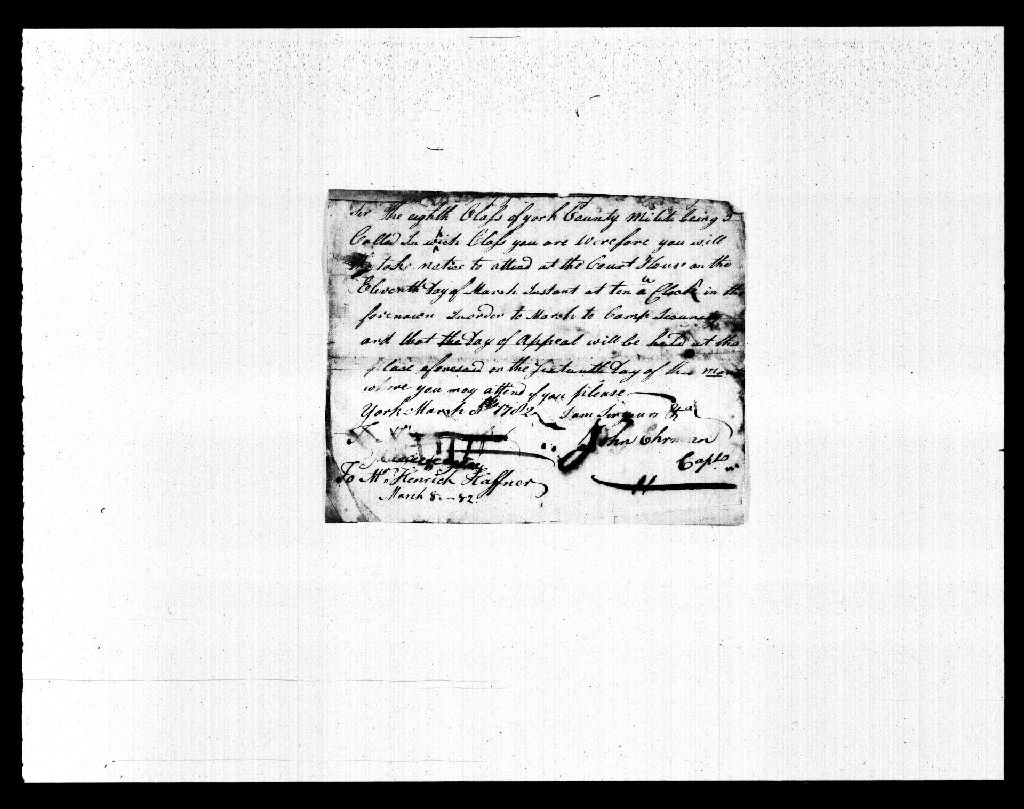 Sir The eighth Class of york County Militi being
Called In wich Class you are Werefore you will
take notice to attend at the Court House on the
Eleventh Day of March Instant at ten a Clock in the
forenoon In order to March to Camp Security
and that the Day of Appeal will be held at the
place aforesaid on the Day of this
were you may attend if you please
York March 1782 I am Sir yours &c
John Ehrman
Capt
To Mr. Henrich Haffner
March 8 - 82